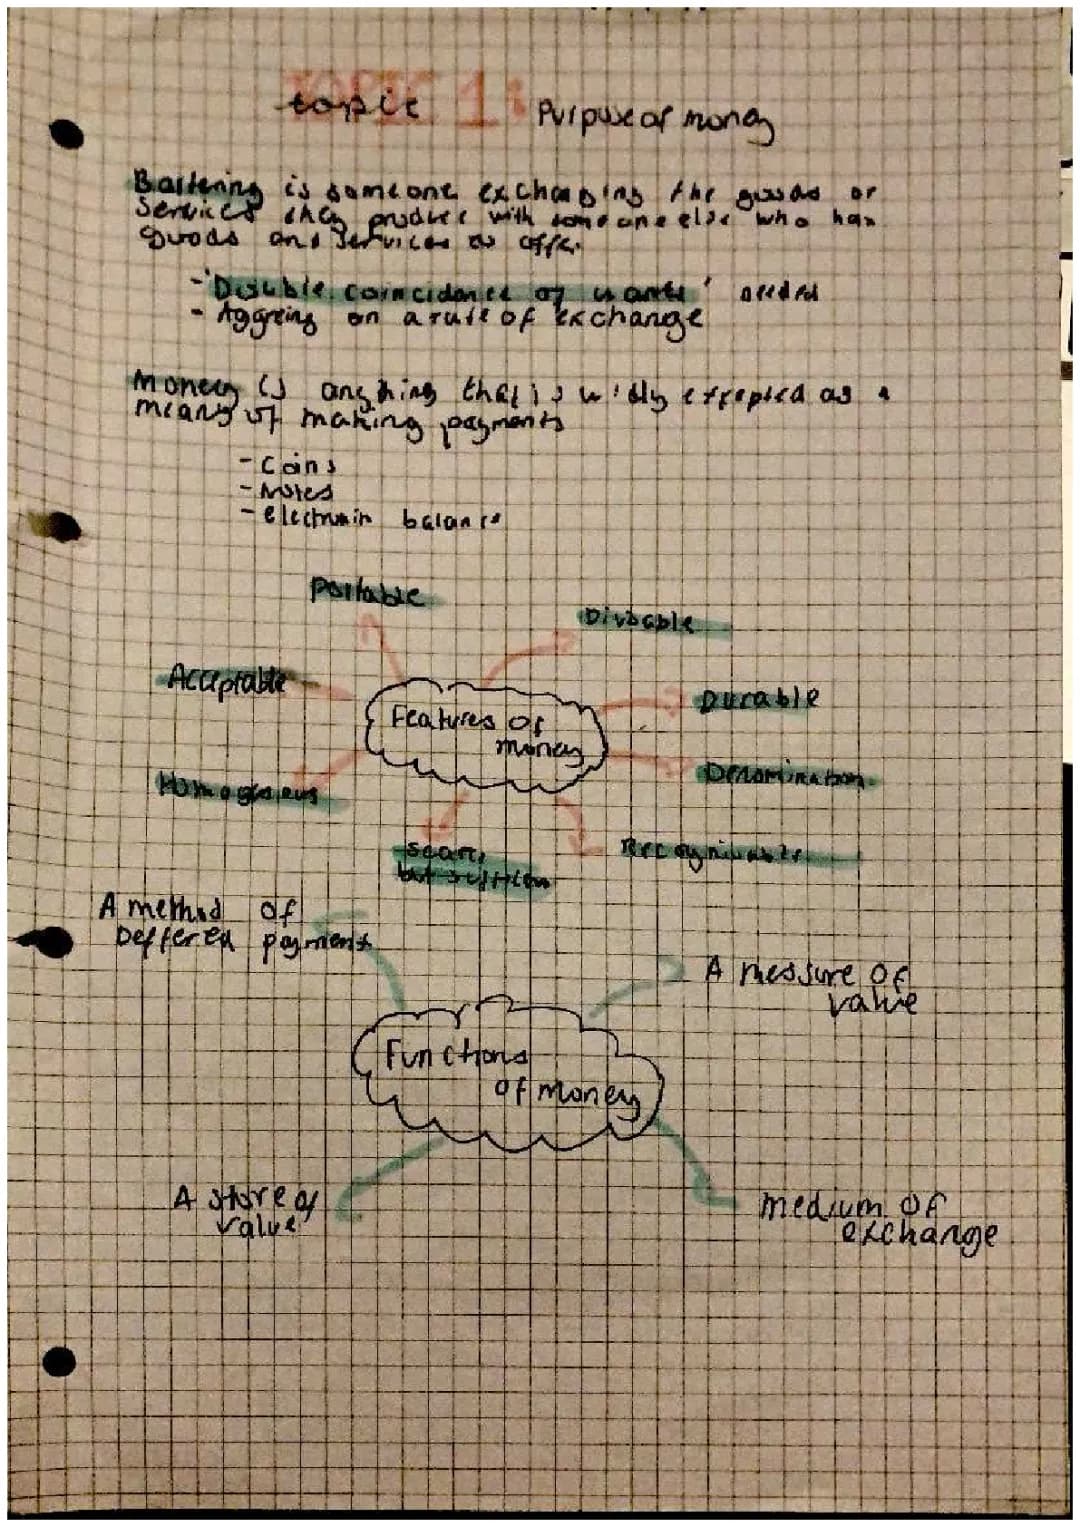 topic 1: Purpose of money
Bartering is someone exchanging the goods or
services they produce with someone else who has
goods and services to offer.
- 'Double coincidence of wants' needed
- Aggreing on a rate of exchange
Money is anything that is widly excepted as a
means of making payments
- Coins
- Notes
- electronic balance
Portable
Divisable
Acceptable
Durable
Features of
money
Denomination
Homogeneus
scarce,
but sufficient
Recognisable
A method of
Deffered payment
A messure of
value
Functions
of money
A store of
value
medium of
exchange